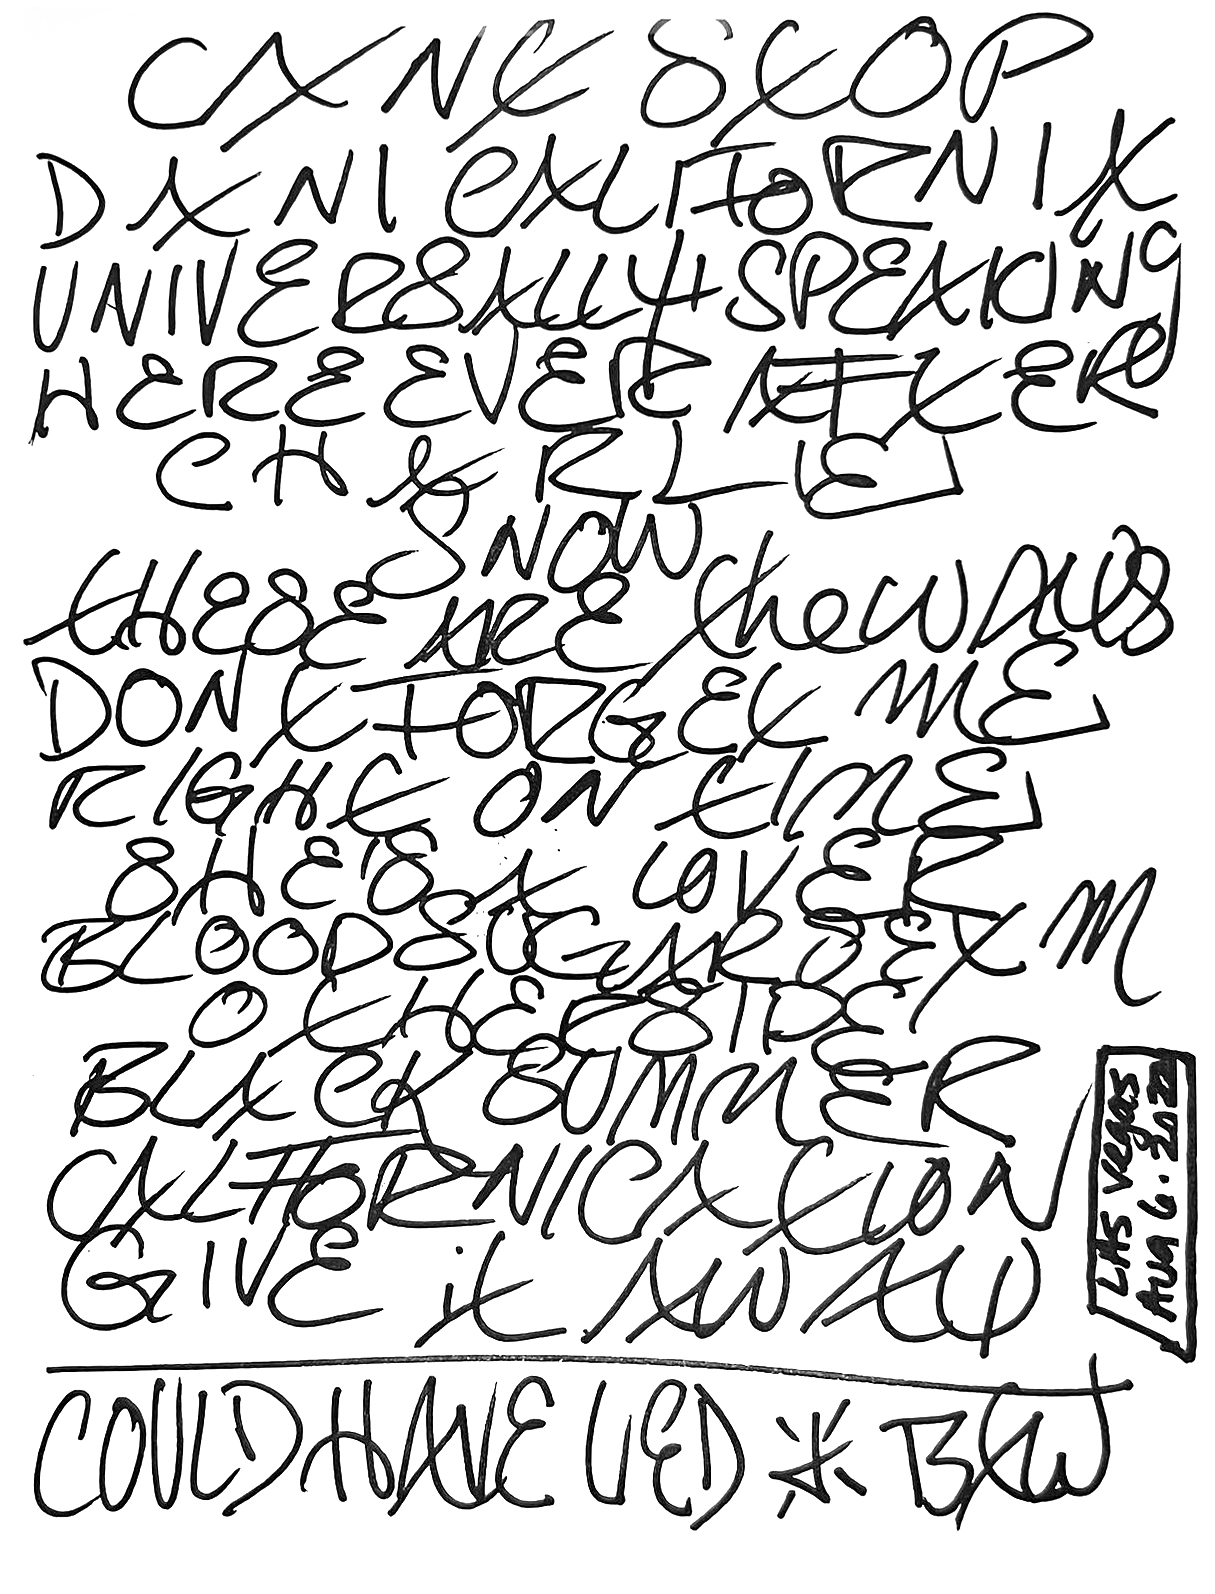 CAN'T STOP
DANI CALIFORNIA
UNIVERSALLY SPEAKING
HERE EVER AFTER
CHARLIE
SNOW
THESE ARE the WAYS
DON'T FORGET ME
RIGHT ON TIME
SHE'S A LOVER
BLOOD SUGAR SEX M
OTHERSIDE
BLACK SUMMER
CALIFORNICATION
GIVE it AWAY
LAS Vegas
Aug 6. 2022
COULD HAVE LIED * BTW